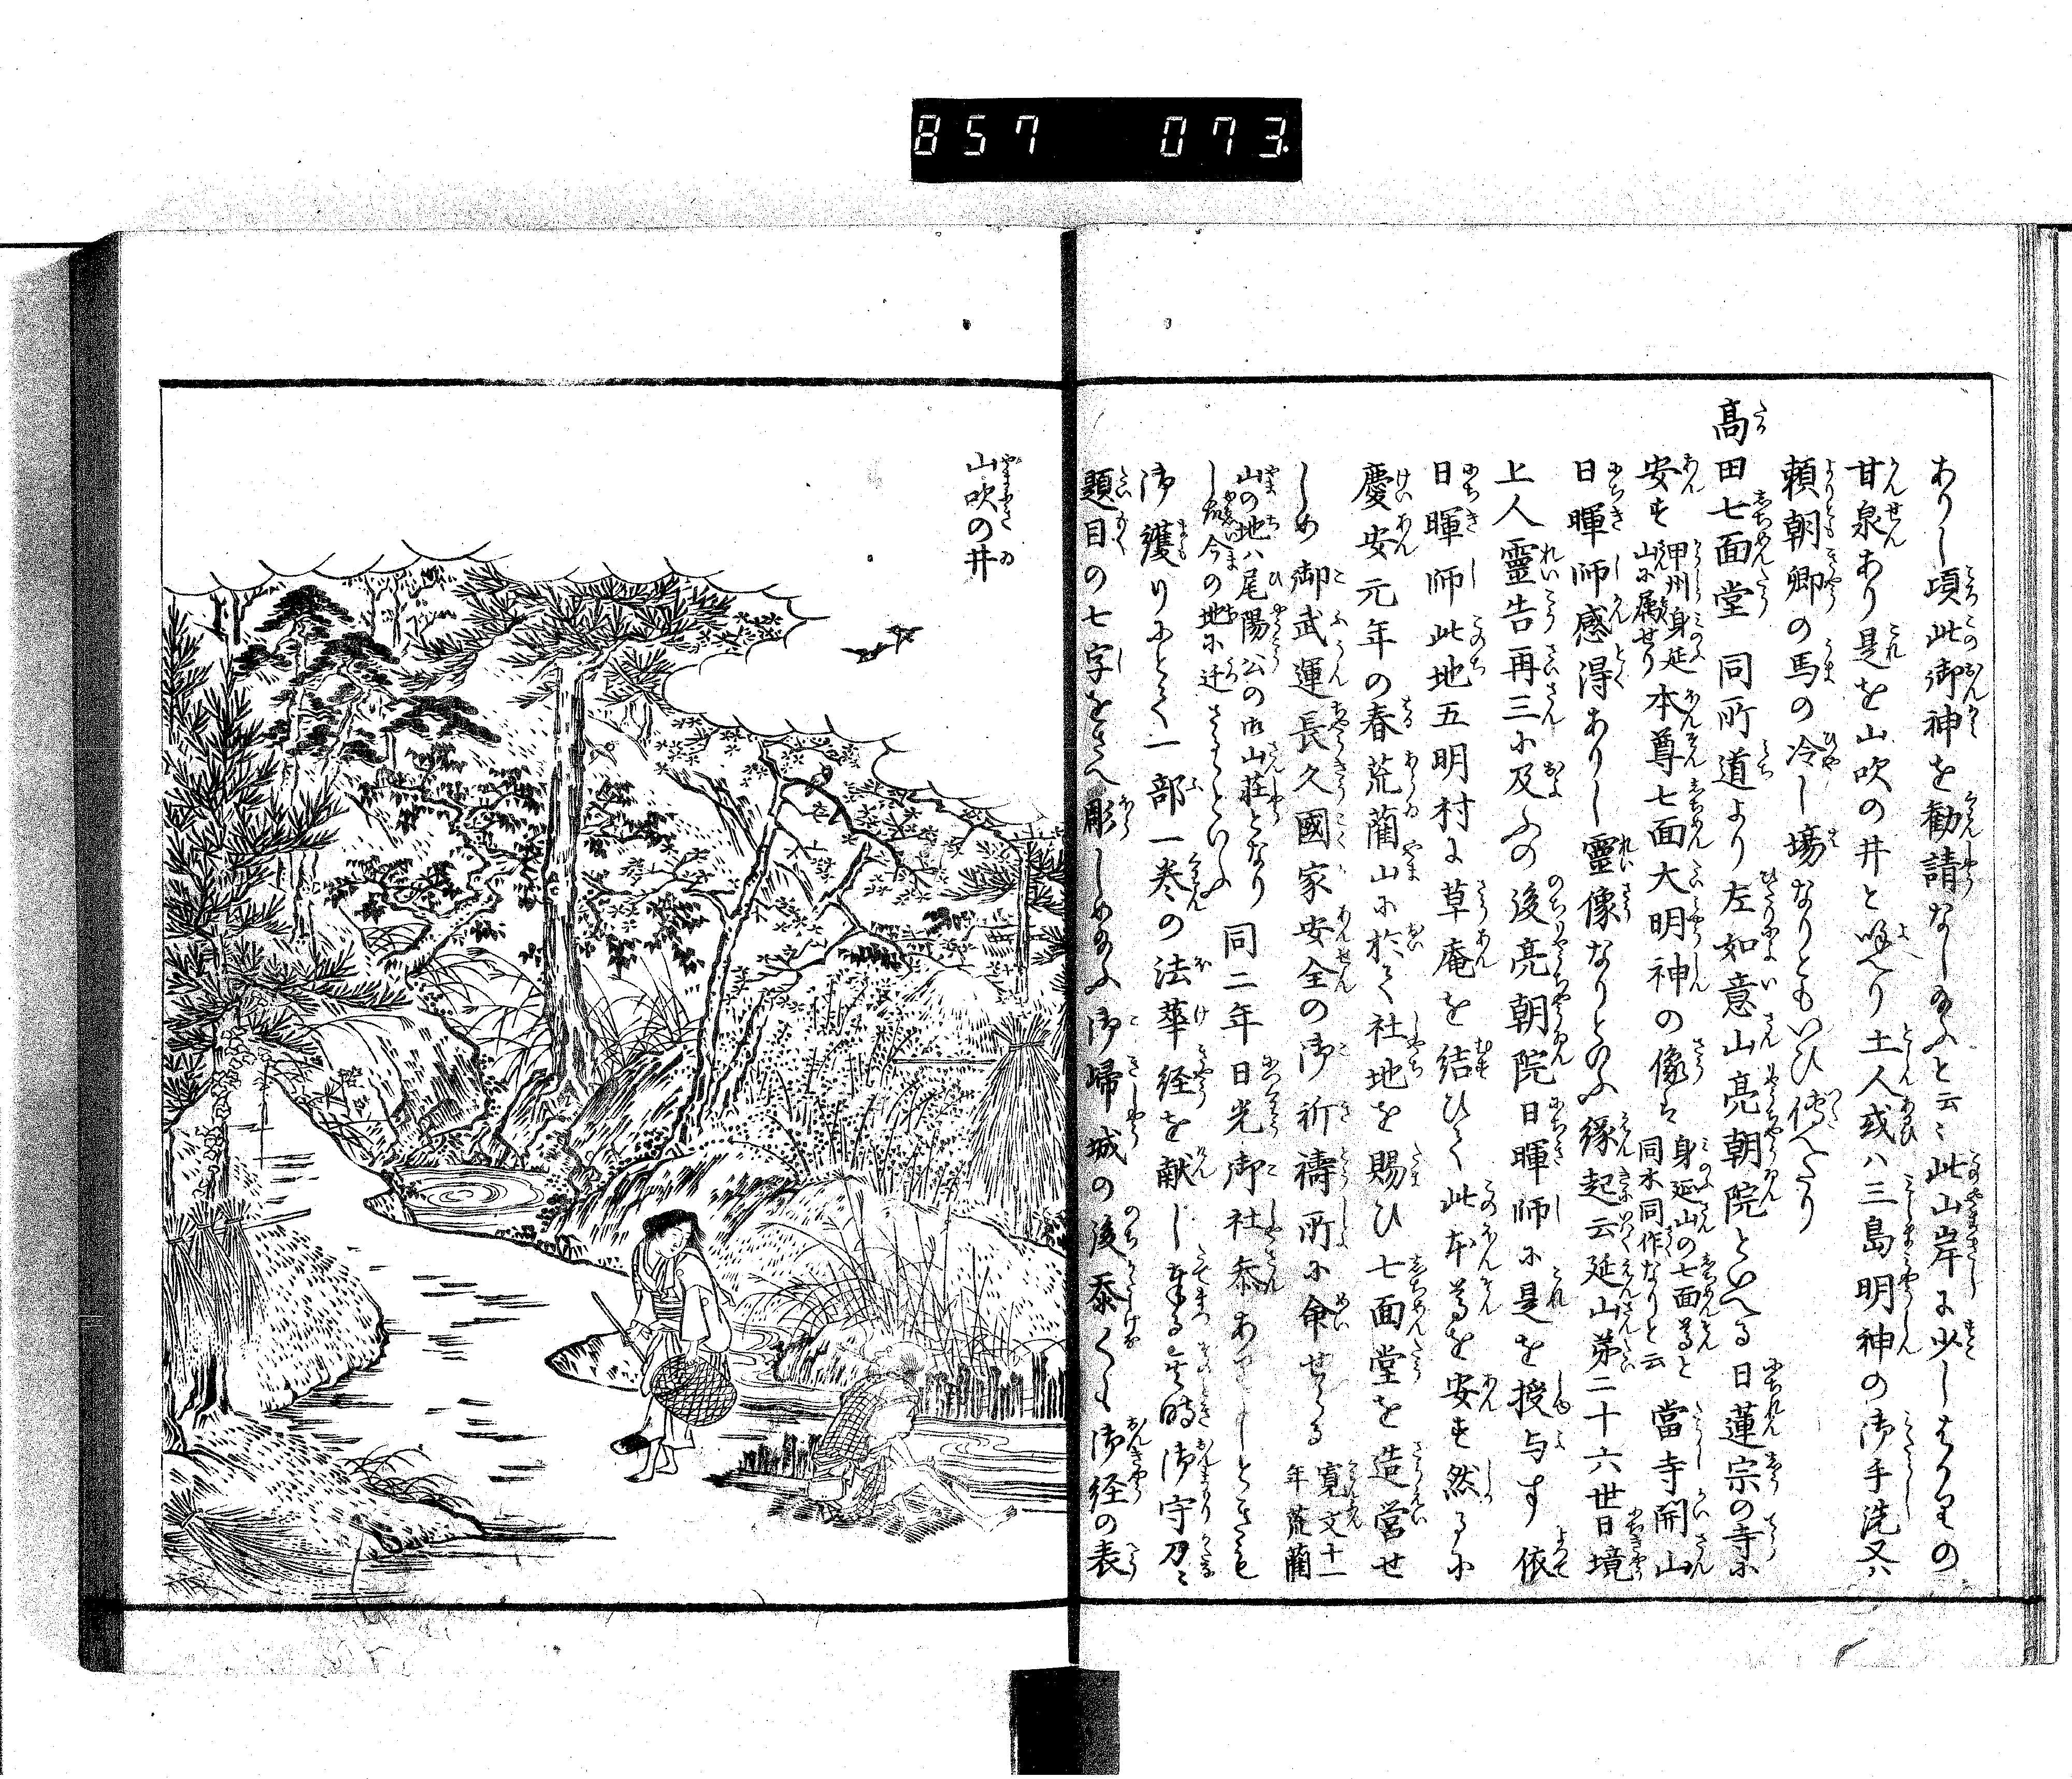 857 073
ありし頃此御神を勧請なし給ふと云々此山岸に少しはかりの
甘泉あり是を山吹の井と唱へり土人或ハ三島明神の御手洗又ハ
頼朝卿の馬の冷し場なりともいひ傳へたり
髙田七面堂 同所道より左如意山亮朝院といへる日蓮宗の寺に
安す 甲州身延山に属せり 本尊七面大明神の像は 身延山の七面尊と同木同作なりと云 當寺開山
日暉師感得ありし靈像なりとのふ縁起云延山第二十六世日境
上人靈告再三に及ふの後亮朝院日暉師に是を授与す依
日暉師此地五明村に草庵を結ひて此本尊を安す然るに
慶安元年の春荒藺山に於て社地を賜ひ七面堂を造営せ
しめ御武運長久國家安全の御祈禱所に命せらる 寛文十一年荒藺
山の地ハ尾陽公の御山荘となりし故今の地に迁さるゝといふ 同二年日光御社参ありしときも
御護りにとて一部一巻の法華経を献し奉る其時御守刀に
題目の七字をさへ彫しめ給ふ御帰城の後忝くも御経の表
山吹の井